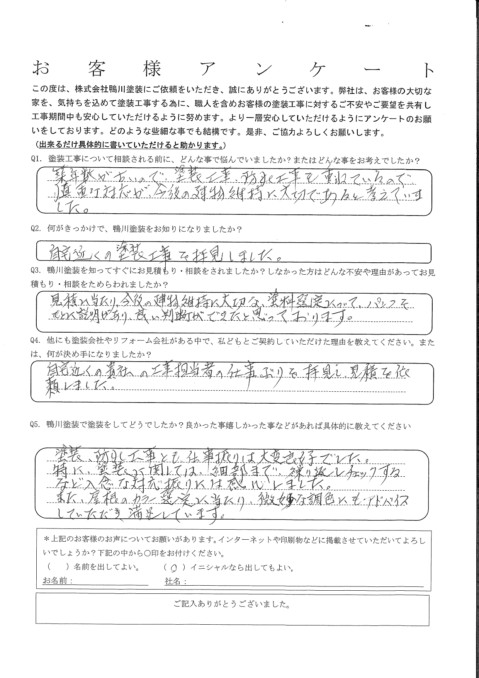 お客様アンケート
この度は、株式会社鴨川塗装にご依頼をいただき、誠にありがとうございます。弊社は、お客様の大切な
家を、気持ちを込めて塗装工事する為に、職人を含めお客様の塗装工事に対するご不安やご要望を共有し
工事期間中も安心していただけるように努めます。より一層安心していただけるようにアンケートのお願
いをしております。どのような些細な事でも結構です。是非、ご協力よろしくお願いします。
（出来るだけ具体的に書いていただけると助かります。）
Q1. 塗装工事について相談される前に、どんな事で悩んでいましたか？またはどんな事をお考えでしたか？
築年数が古いので、塗装工事、防水工事を重ねているので
慎重な対応が、今後の建物維持に大切であると考えていま
した。
Q2. 何がきっかけで、鴨川塗装をお知りになりましたか？
自宅近くの塗装工事を拝見しました。
Q3. 鴨川塗装を知ってすぐにお見積もり・相談をされましたか？しなかった方はどんな不安や理由があってお見
積もり・相談をためらわれましたか？
見積に当たり、今後の建物維持に大切な、塗料選定について、パンフを
もとに説明があり、良い判断ができたと思っております。
Q4. 他にも塗装会社やリフォーム会社がある中で、私どもとご契約していただけた理由を教えてください。また
は、何が決め手になりましたか？
自宅近くの貴社への工事担当者の仕事ぶりを拝見し、見積を依
頼しました。
Q5. 鴨川塗装で塗装をしてどうでしたか？良かった事嬉しかった事などがあれば具体的に教えてください
塗装、防水工事とも、仕事振りは大変良好でした。
特に、塗装に関しては、細部まで、繰り返しチェックする
など入念な対応振りには感心しました。
また、屋根のカラー選定に当たり、微妙な調色にも、アドバイス
していただき、満足しています。
＊上記のお客様のお声についてお願いがあります。インターネットや印刷物などに掲載させていただいてよろし
いでしょうか？下記の中から〇印をお付けください。
（　）名前を出してよい。（〇）イニシャルなら出してもよい。
お名前：　社名：
ご記入ありがとうございました。